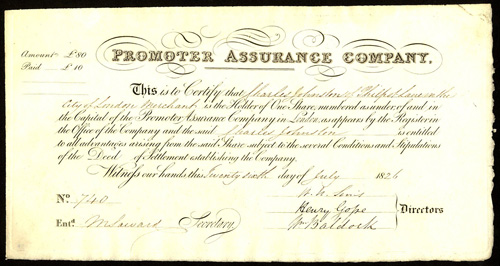 Amount £80
Paid £10
PROMOTER ASSURANCE COMPANY.
This is to Certify that Charles Johnston of Philpot Lane in the
City of London Merchant is the Holder of One Share, numbered as under, of and in
the Capital of the Promoter Assurance Company in London, as appears by the Register in
the Office of the Company and the said Charles Johnston is entitled
to all advantages arising from the said Share subject to the several Conditions and Stipulations
of the Deed of Settlement establishing the Company.
Witness our hands this Twenty sixth day of July 1826
No. 740
Entd. Secretary
Henry Goss
Wm Baldock
Directors